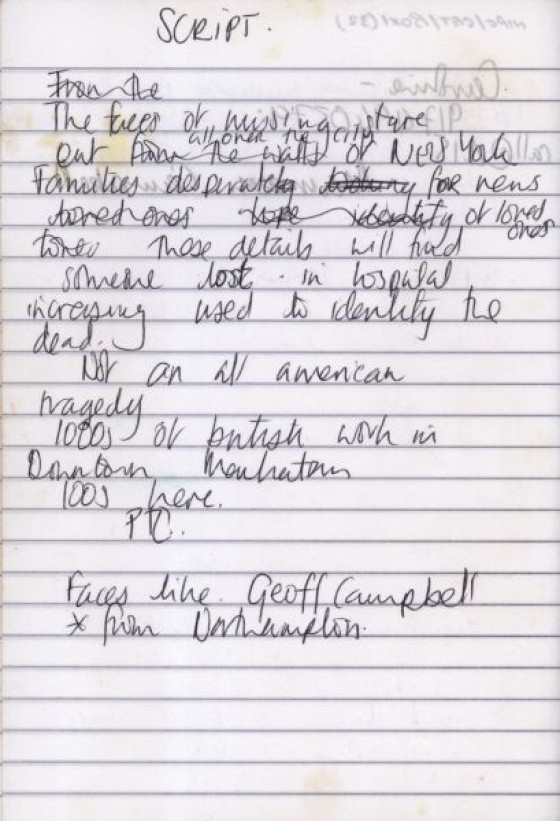 SCRIPT.
From the
The faces of missing stare
all over the city
out from the walls of New York
Families desperately for news
loved ones hope identity of loved
ones
These details will find
someone lost in hospital
increasing used to identify the
dead.
Not an all american
tragedy
1000s of british work in
Downtown Manhatten
100s here.
PTC.
Faces like Geoff Campbell
* from Northampton.